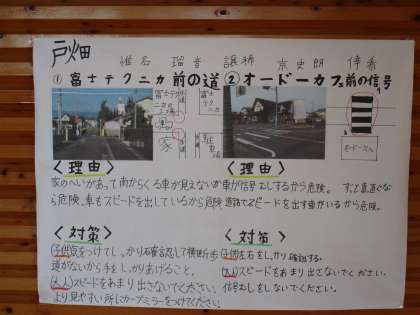 戸畑
椎名 瑠音 譲稀 京史朗 倖希
①富士テクニカ前の道
②オードーカフェ前の信号
富士テクニカ
家
駐車場
富士テクニカ
オードーカフェ
<理由>
家のへいがあって南からくる車が見えないから危険。車もスピードを出しているから危険。
<理由>
車が信号むしするから危険。すごく直道で
スピードを出す車がいるから危険。
<対策>
子供 気をつけてしっかり確認して横断歩
道がないから手をしっかりあげること。
大人 スピードをあまり出さないでください。
より見やすい所にカーブミラーをつけてください。
<対策>
子供 左右をしっかり確認する。
大人 スピードをあまり出さないでください。
信号むしをしないでください。